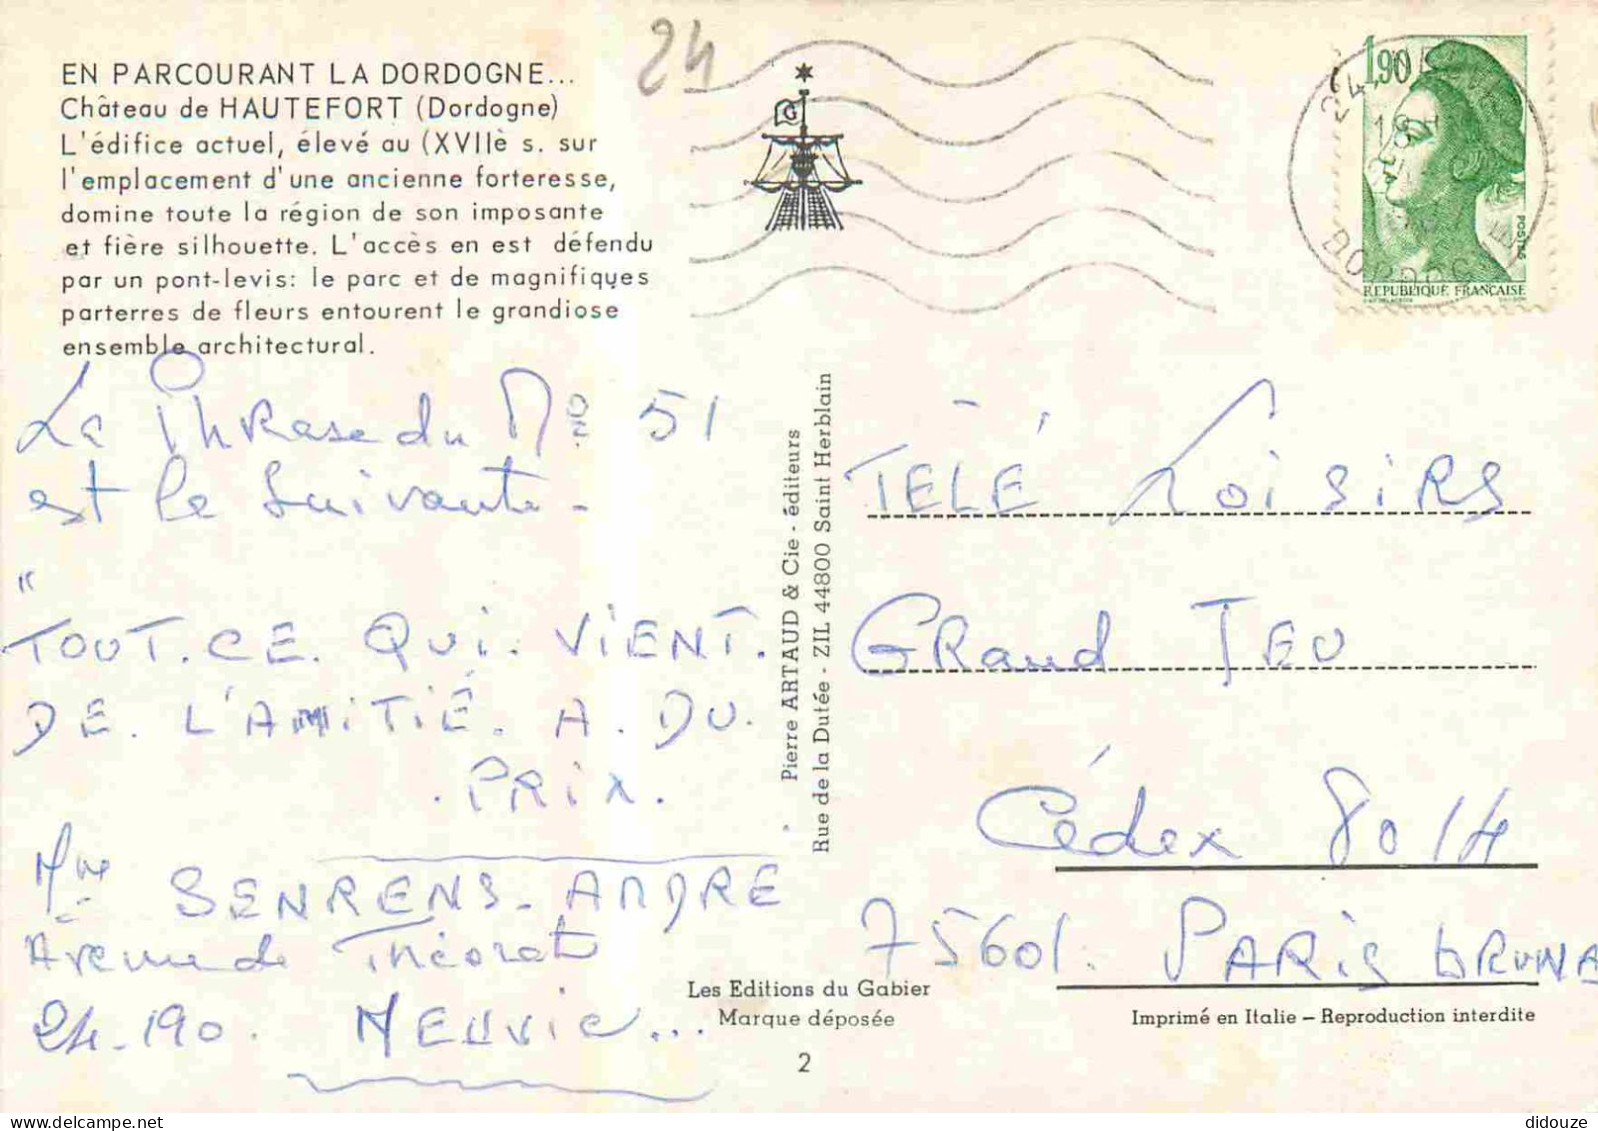 24
EN PARCOURANT LA DORDOGNE...
Château de HAUTEFORT (Dordogne)
L'édifice actuel, élevé au (XVIIè s. sur
l'emplacement d'une ancienne forteresse,
domine toute la région de son imposante
et fière silhouette. L'accès en est défendu
par un pont-levis: le parc et de magnifiques
parterres de fleurs entourent le grandiose
ensemble architectural.
G
1,90
POSTES
REPUBLIQUE FRANÇAISE
DORDOGNE
La Phrase du No 51
est le suivante -
"
TOUT. CE. QUI. VIENT.
DE. L'AMITIÉ. A. DU.
. PRIX.
Mme SENRENS. ANDRE
Avenue de Théorat
24.190. NEUVIC...
Pierre ARTAUD & Cie - éditeurs
Rue de la Dutée - ZIL 44800 Saint Herblain
TÉLÉ LOISIRS
GRAND JEU
Cédex 8014
75601. PARIS BRUNA
Les Editions du Gabier
Marque déposée
2
Imprimé en Italie – Reproduction interdite
didouze